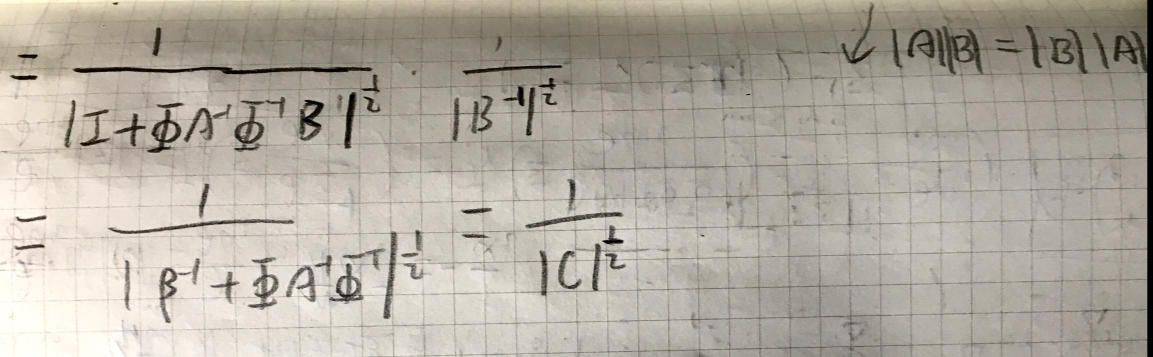 = 1 / |I + ΦA⁻¹Φᵀ B|^{1/2} · 1 / |B⁻¹|^{1/2} ↙ |A||B| = |B||A|
= 1 / |B⁻¹ + ΦA⁻¹Φᵀ|^{1/2} = 1 / |C|^{1/2}